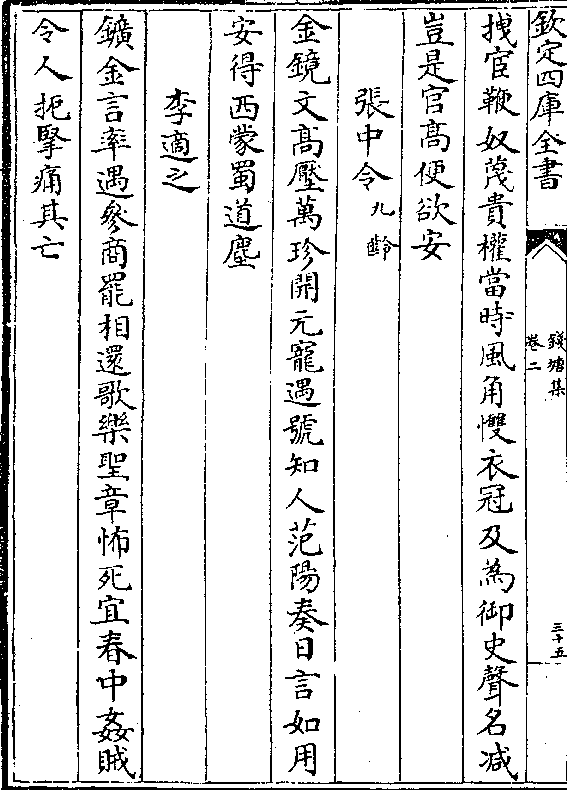 欽定四庫全書
錢塘集
卷二
三十五
拽宦鞭奴蔑貴權當時風角慴衣冠及為御史聲名减
豈是官髙便欲安
張中令九齡
金鏡文髙壓萬珍開元寵遇號知人范陽奏日言如用
安得西蒙蜀道塵
李適之
鑛金言率遇參商罷相還歌樂聖章怖死宜春中姦賊
令人扼擥痛其亡